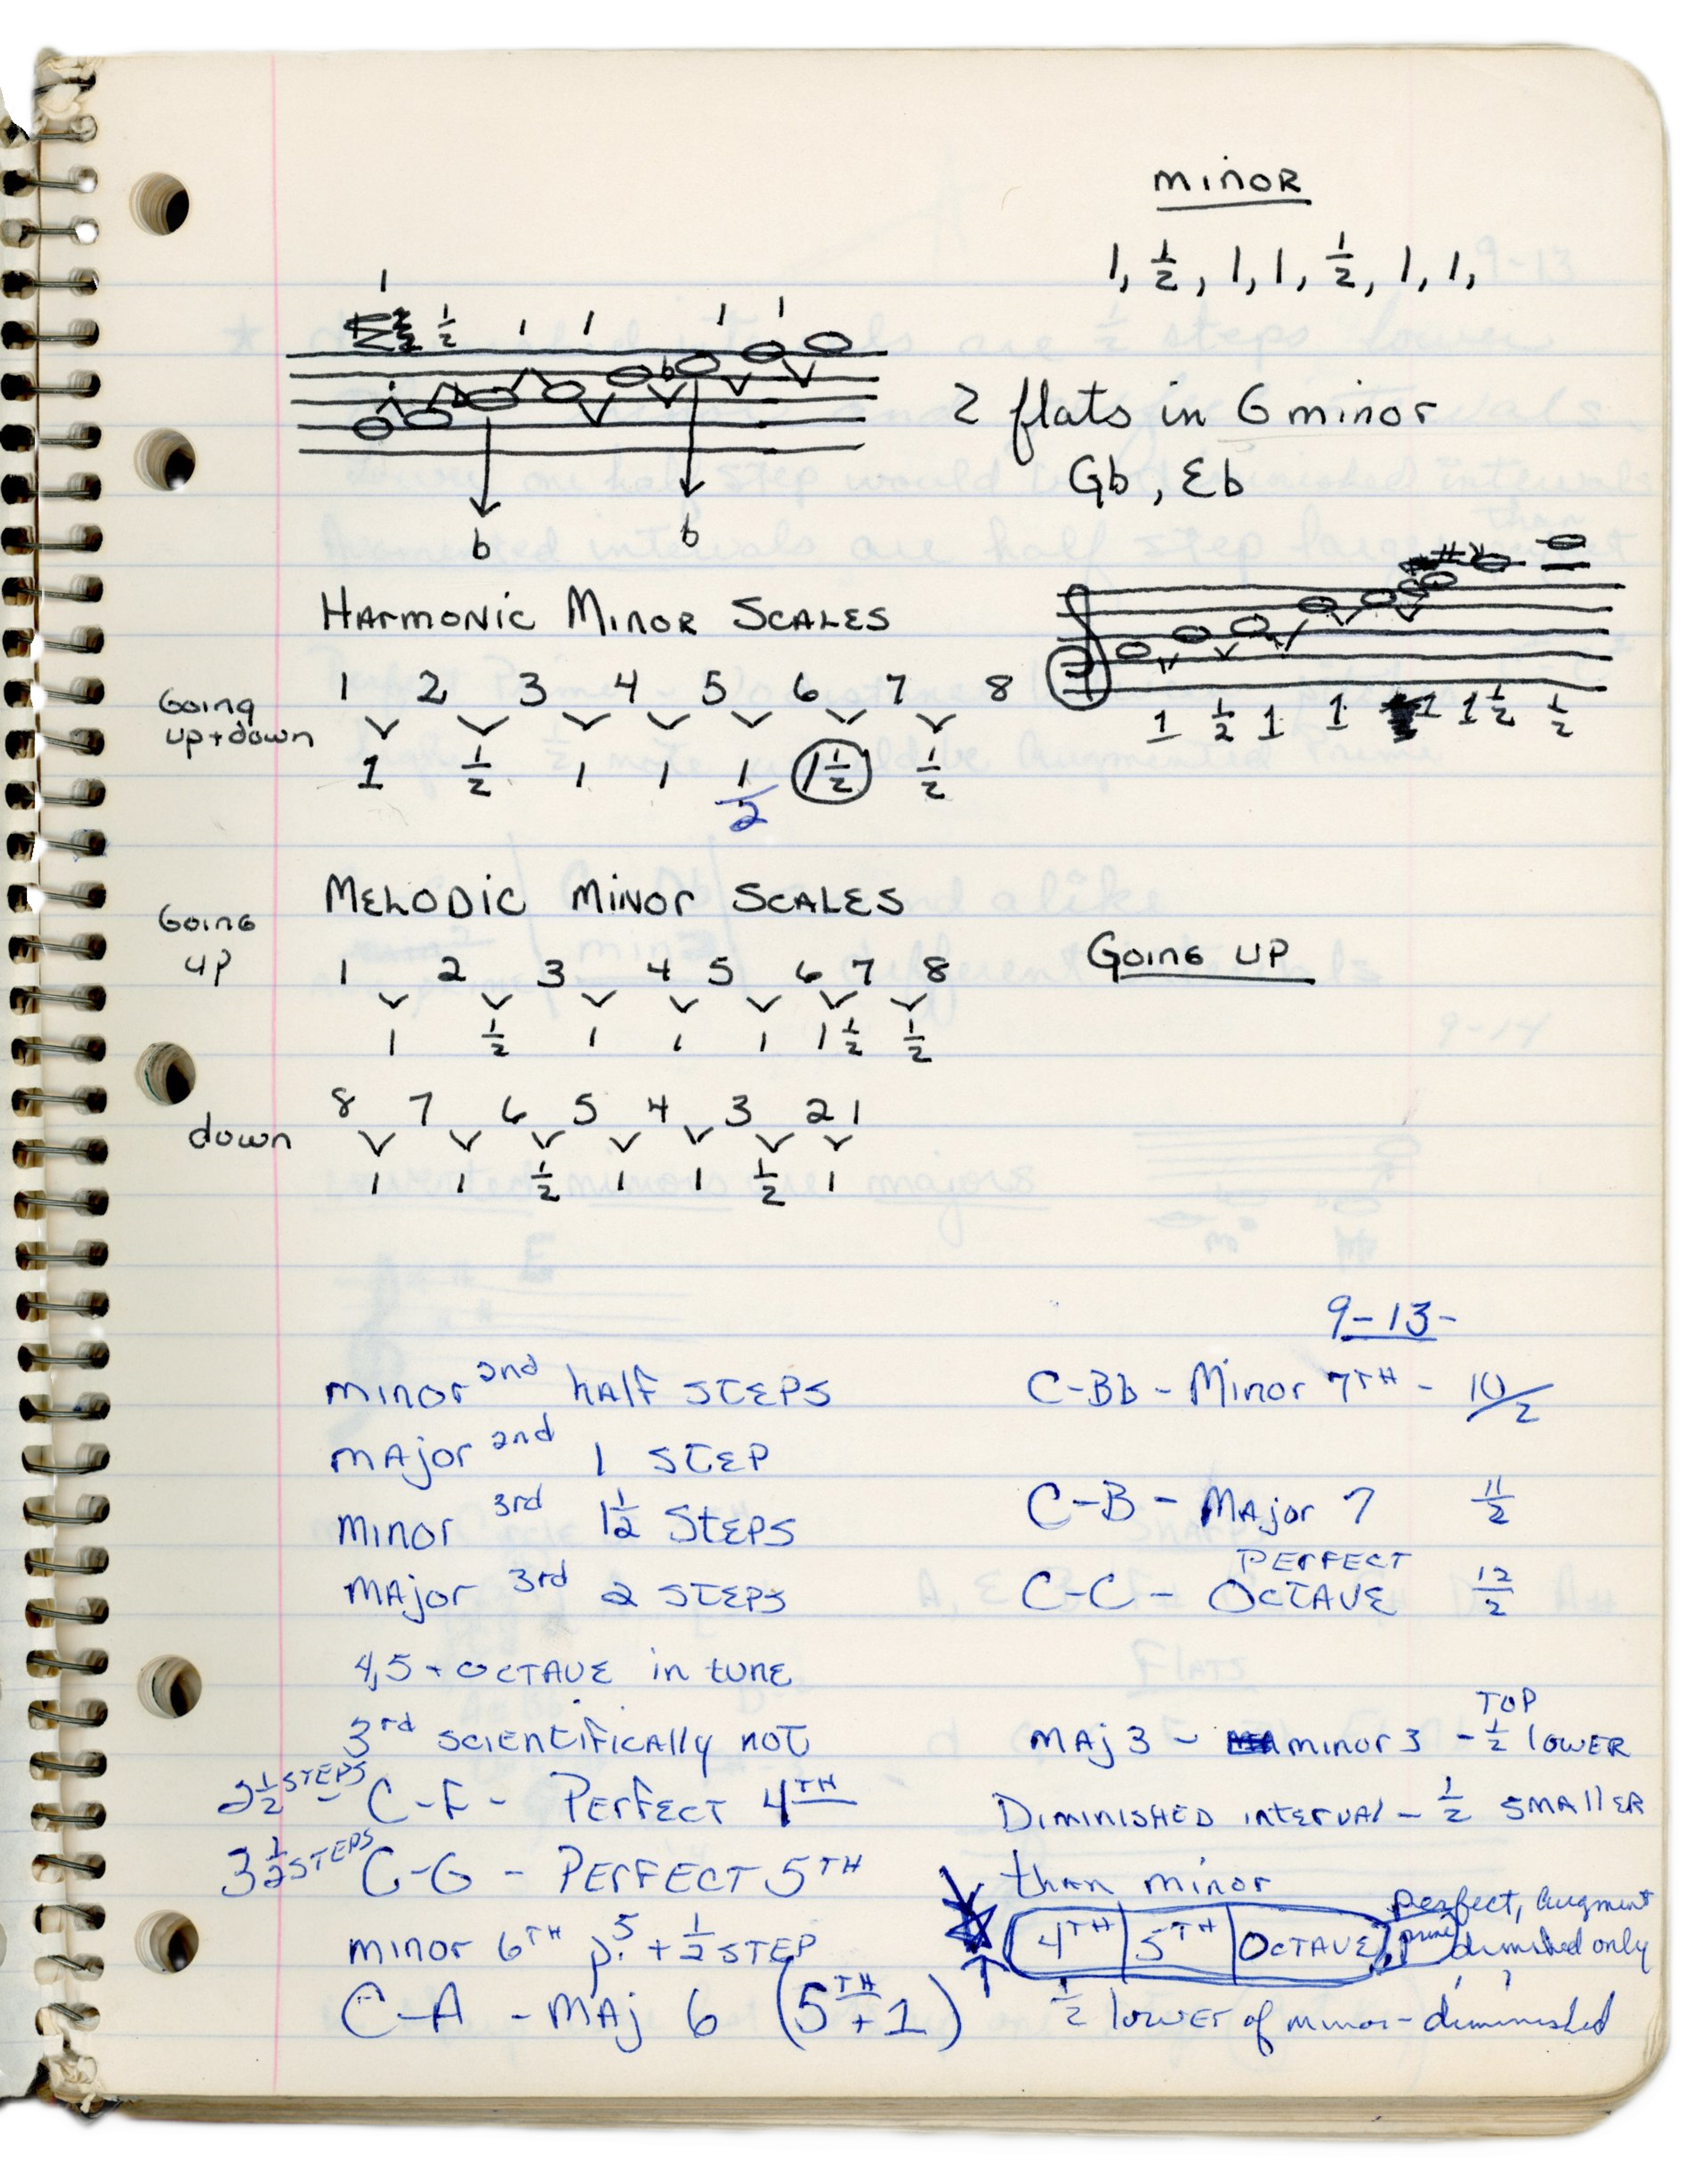 minor
1, 1/2, 1, 1, 1/2, 1, 1,
1
1/2 1 1 1 1
b
2 flats in G minor
Gb, Eb
b b
Harmonic Minor Scales
1 1/2 1 1 1 1 1/2 1/2
Going up + down
1 2 3 4 5 6 7 8
1 1/2 1 1 1/2 1 1/2 1/2
Melodic Minor Scales
Going up
Going up
1 2 3 4 5 6 7 8
1 1/2 1 1 1 1 1/2 1/2
down
8 7 6 5 4 3 2 1
1 1 1/2 1 1 1/2 1
9-13-
minor 2nd half steps
major 2nd 1 step
minor 3rd 1 1/2 steps
major 3rd 2 steps
4,5 + octave in tune
3rd scientifically not
2 1/2 steps - C-F - Perfect 4th
3 1/2 steps C-G - Perfect 5th
minor 6th p.5 + 1/2 step
C-A - Maj 6 (5th + 1)
C-Bb - Minor 7th - 10/2
C-B - Major 7 11/2
C-C - Perfect Octave 12/2
Maj 3 - minor 3 - top 1/2 lower
Diminished interval - 1/2 smaller
than minor
4th 5th Octave, prime perfect, augment
diminished only
1/2 lower of minor - diminished